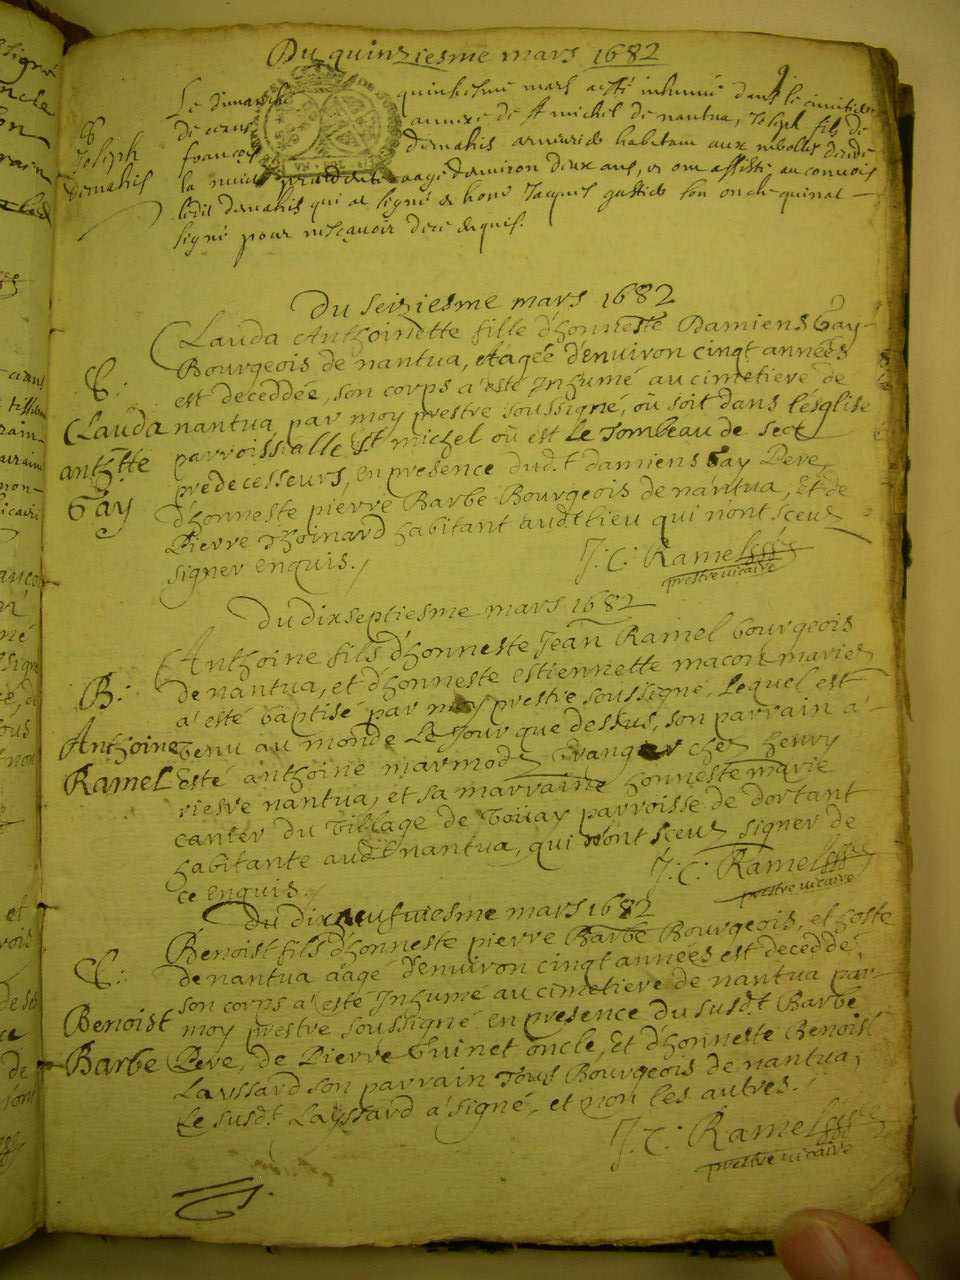 Du quinziesme mars 1682
Le dimanche quinziesme mars a esté inhumé dans le cimitiere
de ceans annexe de St michel de nantua, Joseph fils de
françois demahis armurie habitant aux
la nuict aagé denviron deux ans, et ont assisté au convois
ledit demahis qui a signé et hono Jacques son oncle qui n'at
signé pour ne sçavoir de ce enquis.
S
Joseph
demahis
Du seiziesme mars 1682
Clauda Anthoinette fille d'honneste Damiens Gay
Bourgeois de nantua, et agée d'environ cinqt années
est deceddée, son corps a esté Inhumé au cimetiere de
nantua par moy prestre soussigné, où soit dans lesglise
parroissialle St michel où est le Tombeau de sect
predecesseurs, en presence dud.t damiens Gay Pere,
d'honneste pierre Barbe Bourgeois de nantua, Et de
Pierre Thoinard habitant audt lieu qui nont sceuz
signer enquis./
S:
Clauda
anthtte
Gay
J: C: Ramel
prestre vicaire
Du dixseptiesme mars 1682
Anthoine fils d'honneste Jean Ramel bourgeois
de nantua, et d'honneste estiennette macon mariez
a esté baptisé par moy prestre soussigné, Lequel est
venu au monde Le Jour que dessus, son parrain a
esté anthoine marmod Granger chez henry
riesre nantua, et sa marraine honneste marie
canier du village de Voüay parroisse de dortant
habitante audt nantua, qui n'ont sceuz signer de
ce enquis./
B:
Anthoine
Ramel
J: C: Ramel
prestre vicaire
Du dixneufviesme mars 1682
Benoist fils d'honneste pierre Barbe Bourgeois, et hoste
de nantua aagé d'environ cinqt années est deceddé,
son corps a esté Inhumé au cimetiere de nantua par
moy prestre soussigné en presence du susd.t Barbe
Pere, de Pierre Guinet oncle, et d'honneste Benoist
Laissard son parrain Tous Bourgeois de nantua,
Le susd.t Layssard a signé, et non les autres./
S:
Benoist
Barbe
J: C: Ramel
prestre vicaire